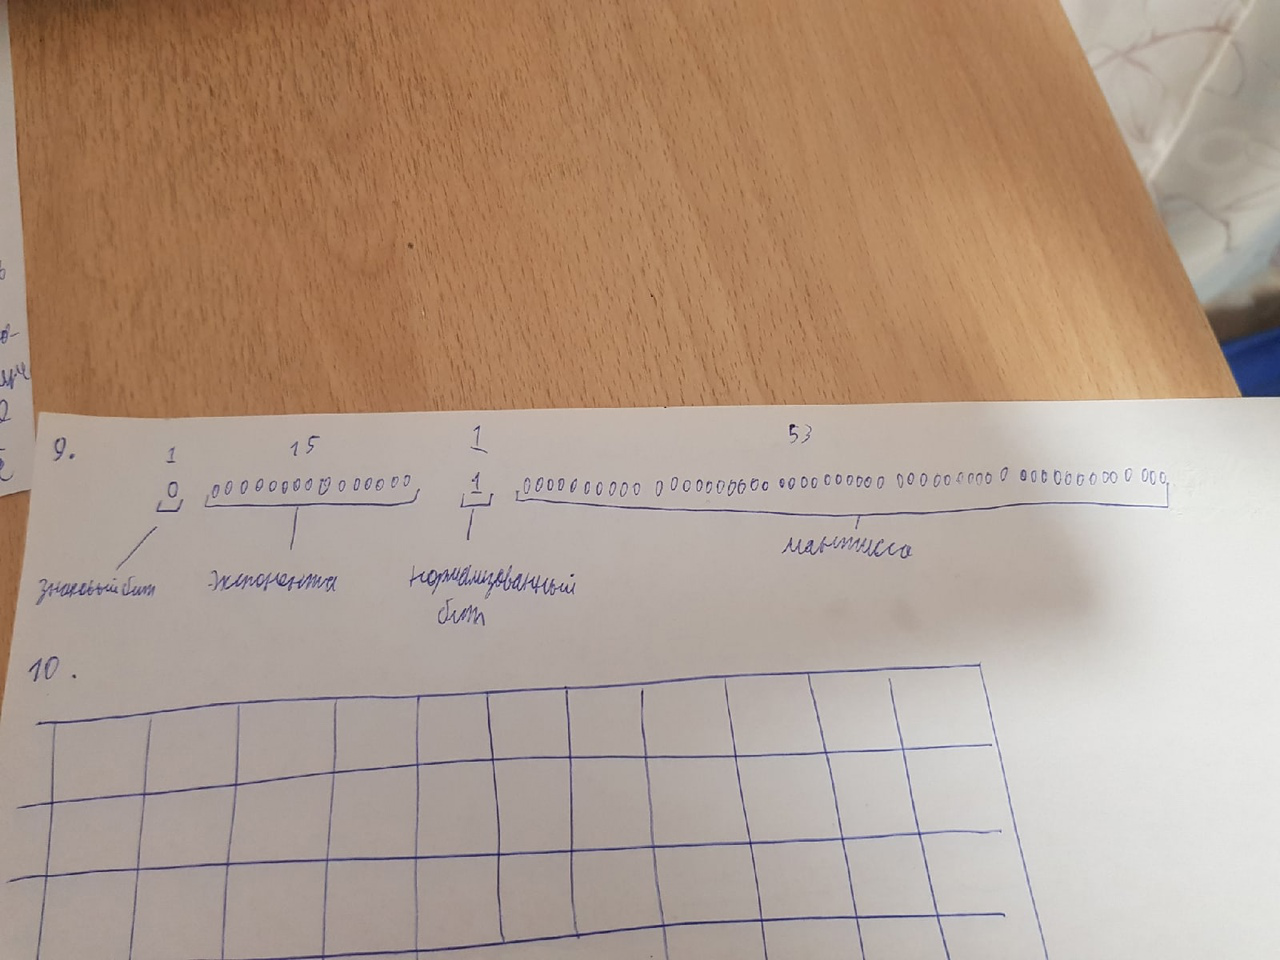 9.
1 15 1 53
0 000000000000000 1 00000000000 00000000000 00000000000 00000000000 000000000000
Знаковый бит Экспонента Нормализованный бит Мантисса
10.